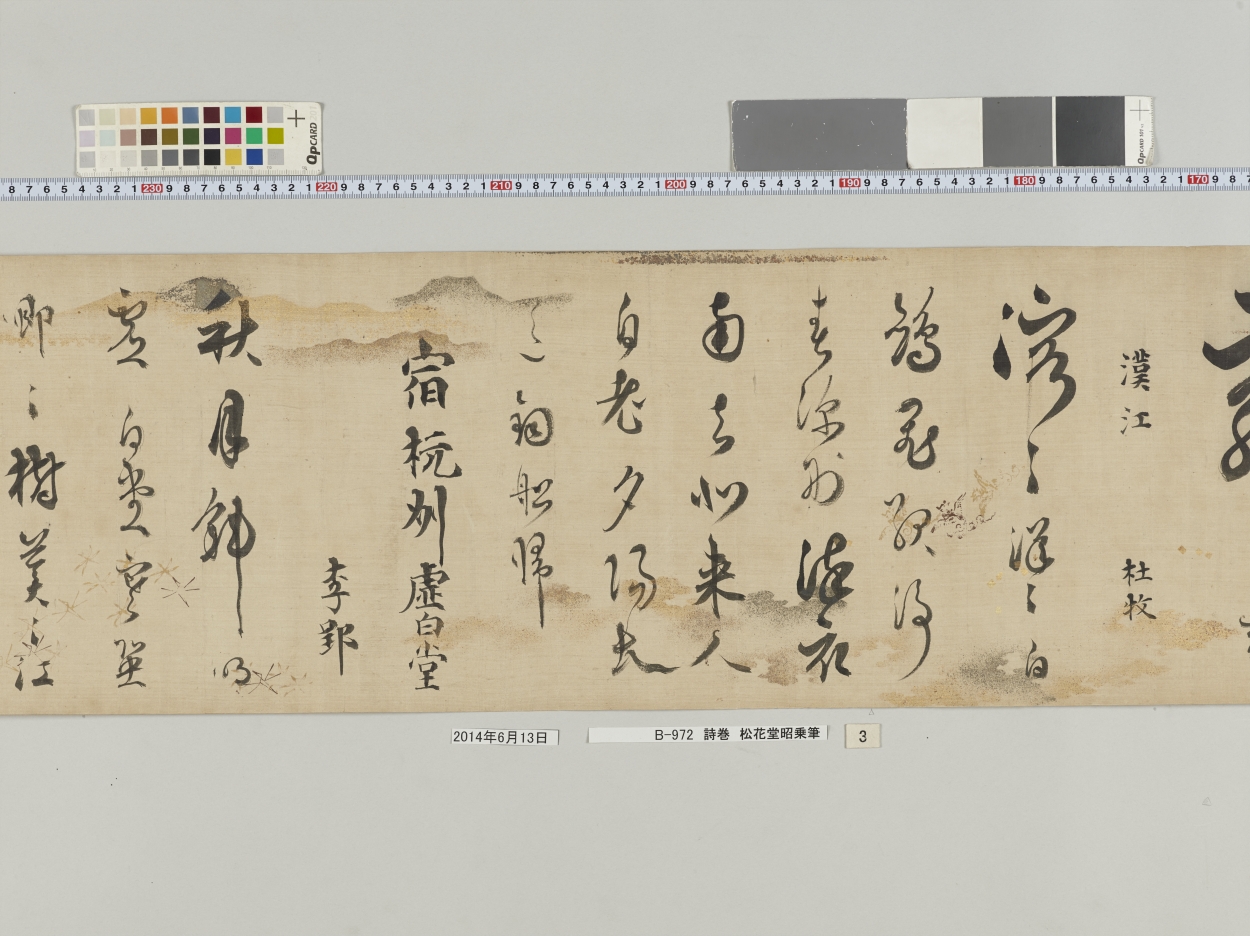 QPCARD 201
QPCARD 101
8 7 6 5 4 3 2 1 230 9 8 7 6 5 4 3 2 1 220 9 8 7 6 5 4 3 2 1 210 9 8 7 6 5 4 3 2 1 200 9 8 7 6 5 4 3 2 1 190 9 8 7 6 5 4 3 2 1 180 9 8 7 6 5 4 3 2 1 170 9 8 7
漢江 杜牧
溶〻漾〻白
鷗飛緑浄
春深好染衣
南去北来人
自老夕陽長
送釣船帰
宿杭州虚白堂
李郢
秋月斜明
虚白堂寒蛩
唧〻樹蒼〻江
2014年6月13日
B-972 詩巻 松花堂昭乗筆
3